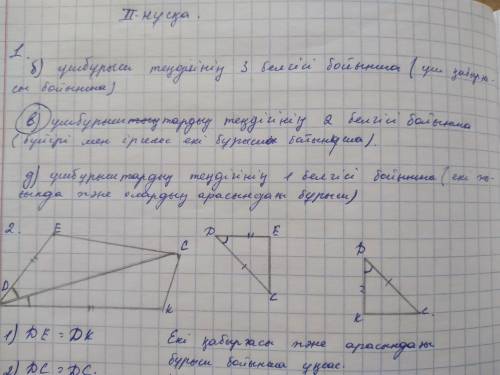 II-нұсқа.
1.
б) үшбұрыш теңдігінің 3 белгісі бойынша (үш қабырға
сы бойынша)
в) үшбұрыштардың теңдігінің 2 белгісі бойынша
(бүйірі мен іргелес екі бұрышы бойынша).
д) үшбұрыштардың теңдігінің 1 белгісі бойынша (екі
және олардың арасындағы бұрыш)
2.
E
C
D
K
D E
C
D
K C.
1) DE = DK
Екі қабырғасы және арасындағы
2) DC = DC.
бұрыш бойынша ұқсас.